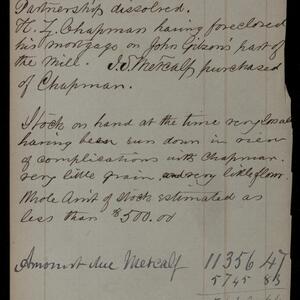 Partnership dissolved.
H. Z. Chapman having foreclosed
his mortgage on John Gibson's part of
the Mill. J. S. Metcalf purchased
of Chapman.
Stock on hand at the time very low
having been run down in view
of complications with Chapman.
very little grain and very little flour.
Whole Am't of Stock estimated as
less than $500.00
Amount due Metcalf 11356 47
5745 83